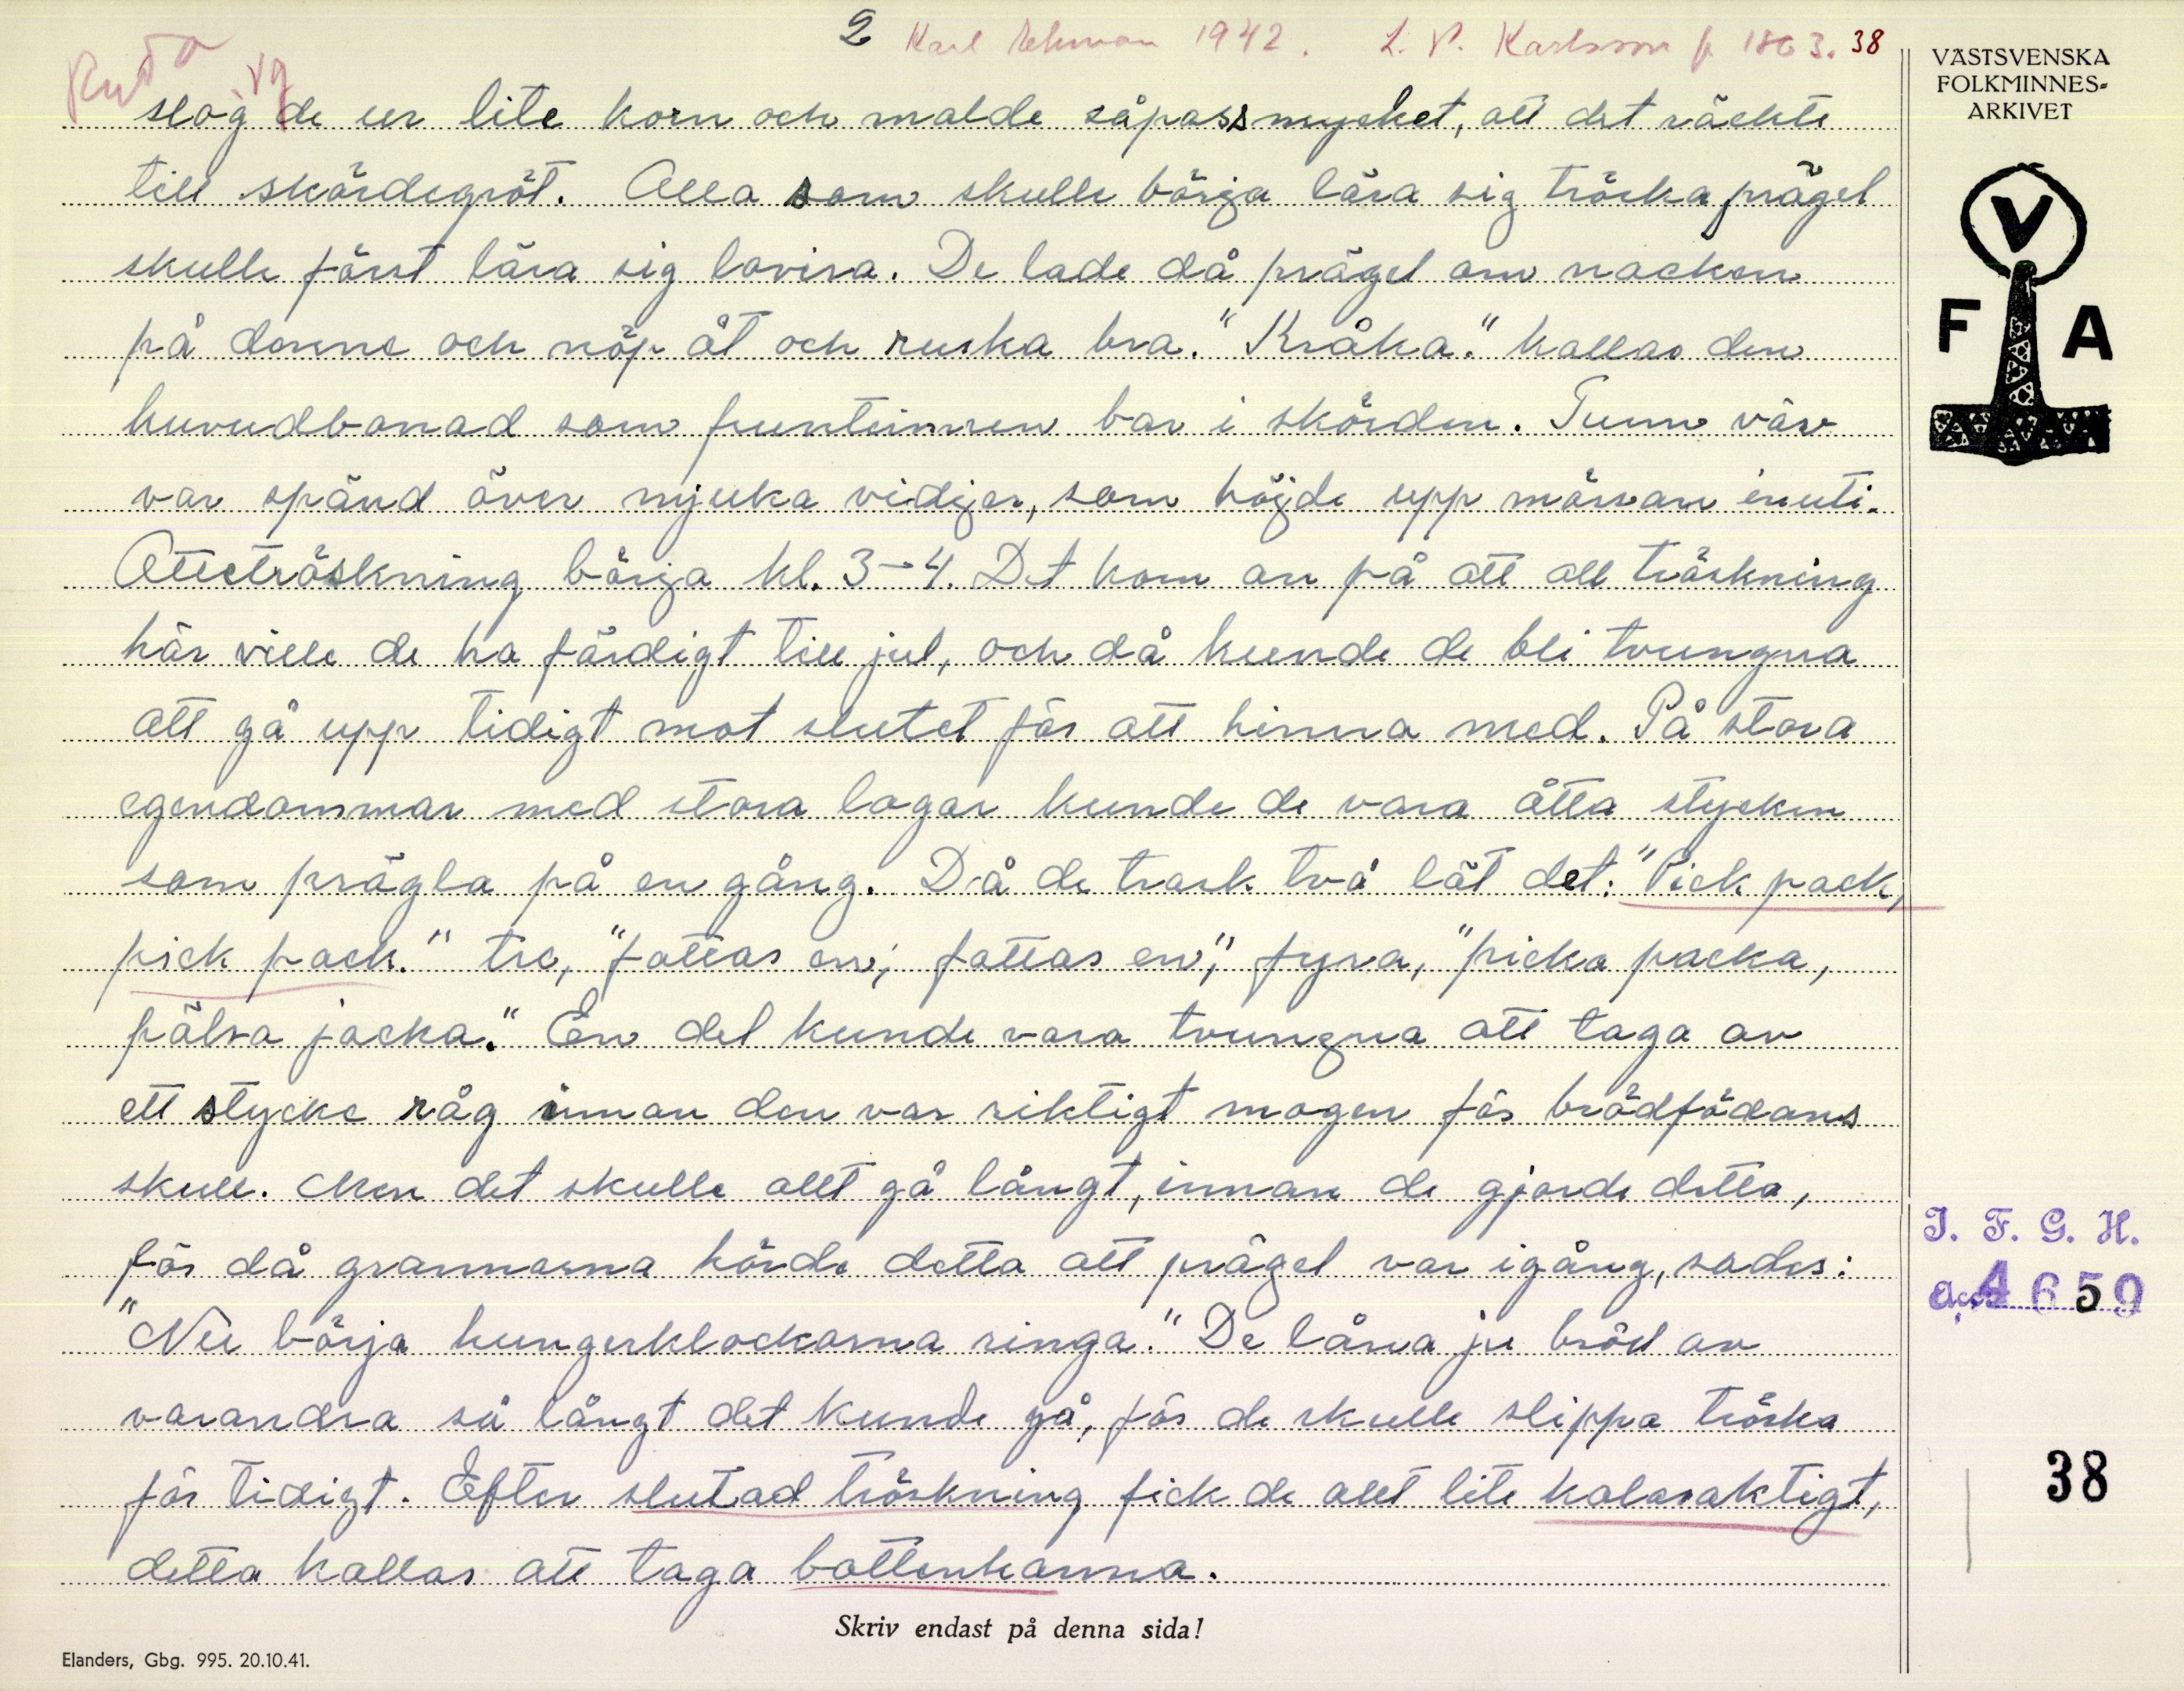 2 Karl 1942. L. P. Karlsson f. 1863. 38
VÄSTSVENSKA
FOLKMINNES-
ARKIVET
Vg
slog de ur lite korn och malde såpass mycket, att det räckte
till skördegröt. Alla som skulle börja lära sig tröska prägel
skulle först lära sig lovisa. De lade då prägel om nacken
på denne och nöp åt och ruska bra. "Kråka." kallas den
huvudbonad som fruntimren bar i skörden. Tunn väv
var spänd över mjuka vidjer, som höjde upp mössan inuti.
Ottetröskning börja kl. 3-4. Det kom an på att all tröskning
här ville de ha färdigt till jul, och då kunde de bli tvungna
att gå upp tidigt mot slutet för att hinna med. På stora
egendommar med stora logar kunde de vara åtta stycken
som prägla på en gång. Då de trask två lät det: "Pick pack,
pick pack." tre, "fattas en, fattas en," fyra, "picka packa,
pälsa jacka." En del kunde vara tvungna att taga av
ett stycke råg innan den var riktigt mogen för brödfödans
skull. Men det skulle allt gå långt, innan de gjorde detta,
för då grannarna hörde detta att prägel var igång, sades:
"Nu börja hungerklockorna ringa." De låna ju bröd av
varandra så långt det kunde gå, för de skulle slippa tröska
för tidigt. Efter slutad tröskning fick de allt lite kalasaktigt,
detta kallas att taga bottenkanna.
V
F A
I. F. G. H.
Acc. 4659
38
Skriv endast på denna sida!
Elanders, Gbg. 995. 20.10.41.